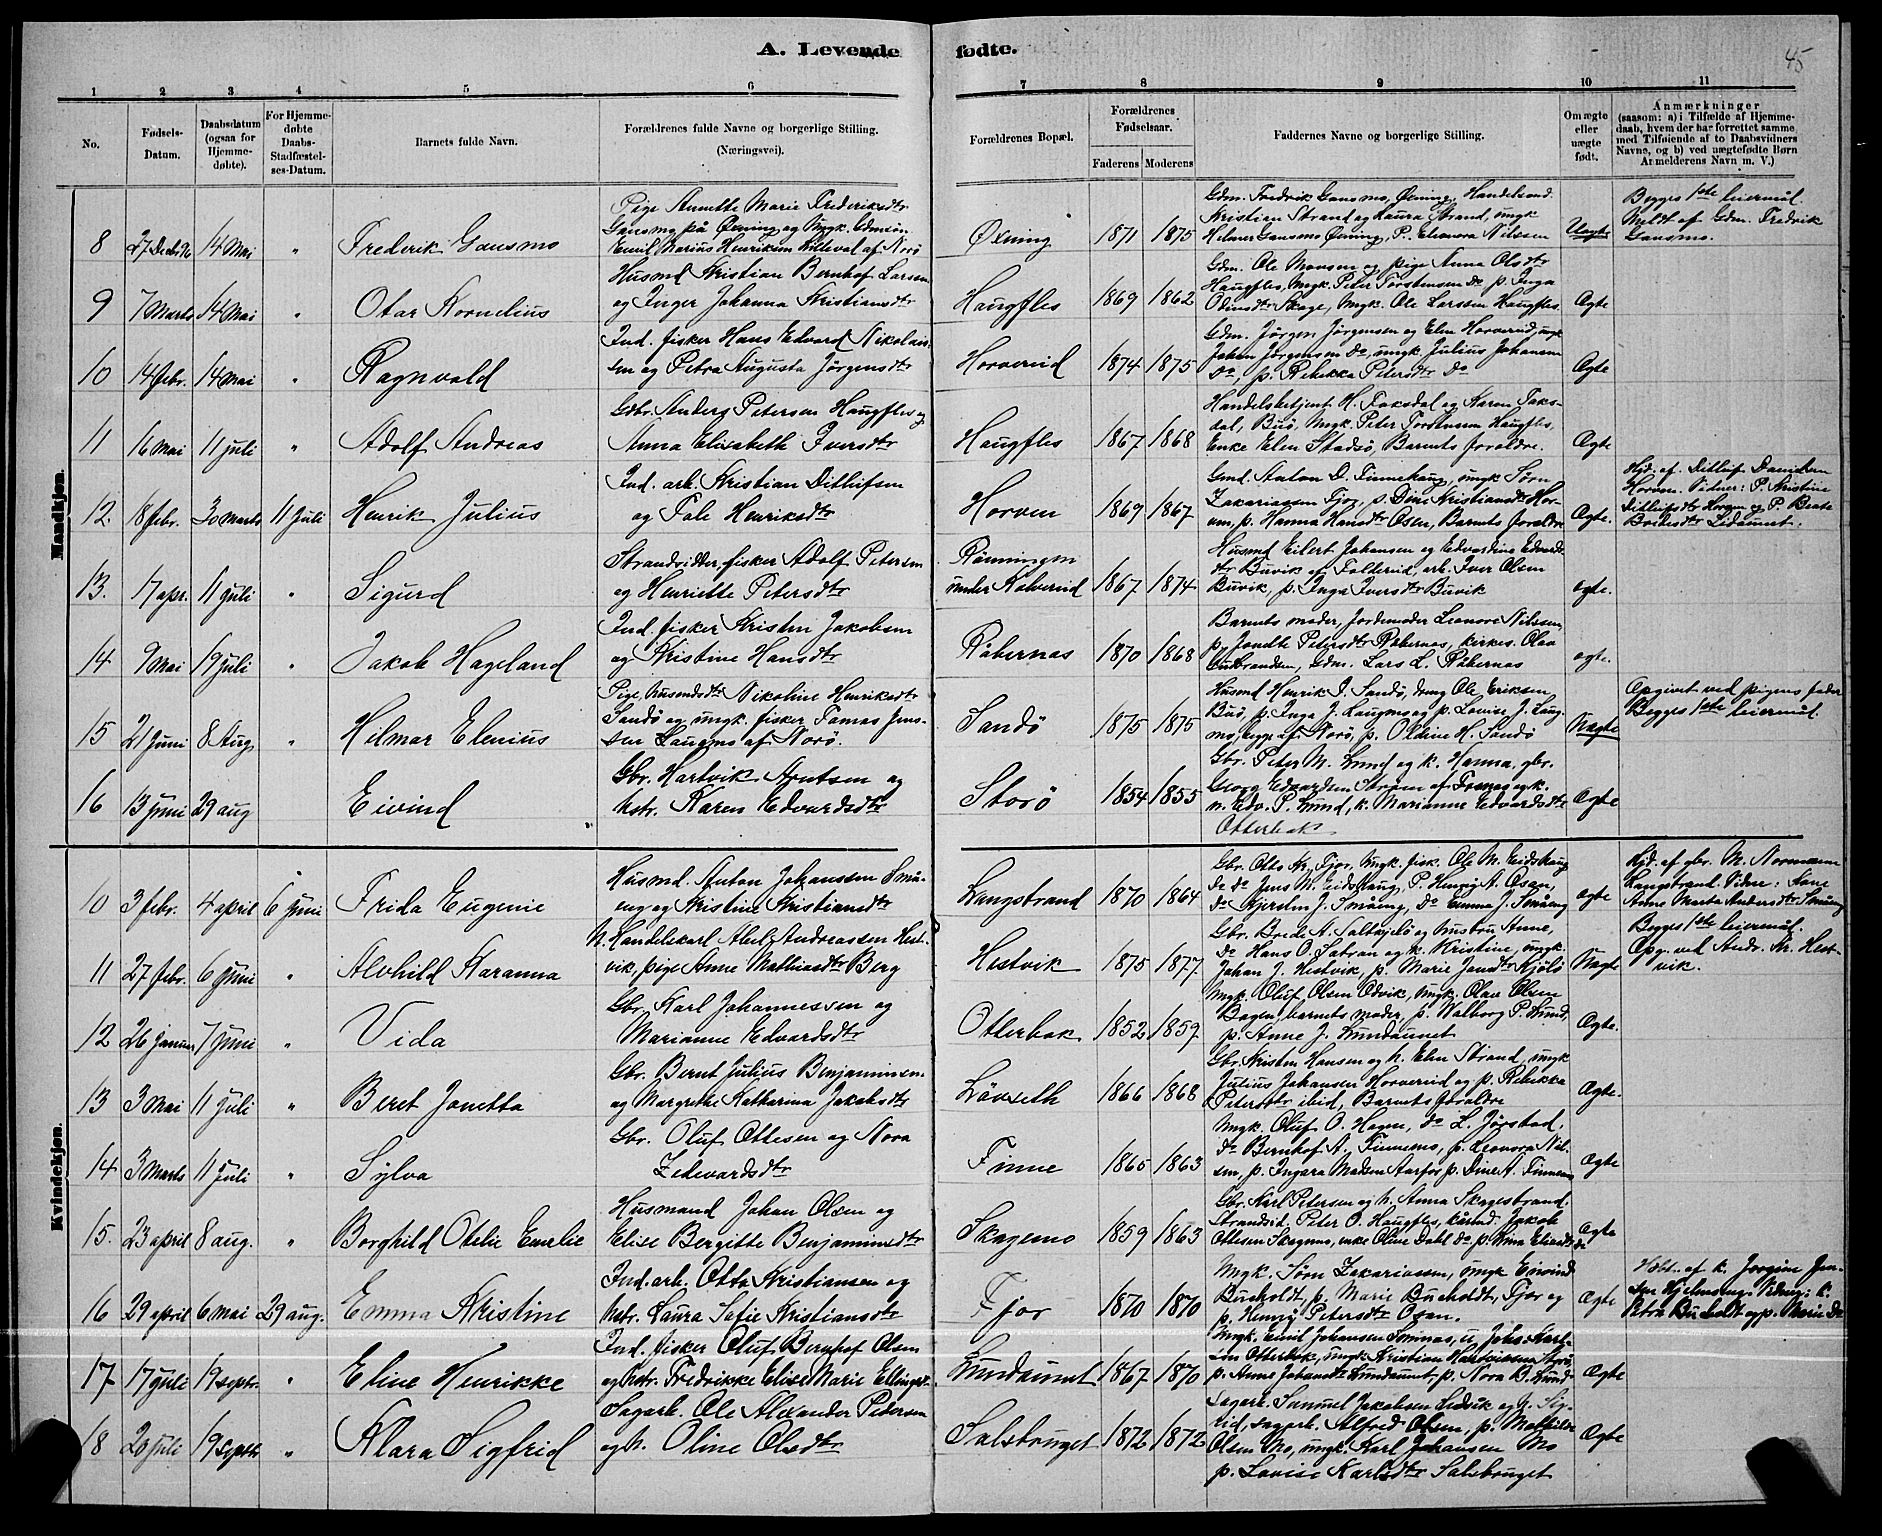 A. Levende fødte.
45
1 2 3 4 5 6 7 8 9 10 11
No.
Fødsels-Datum.
Daabsdatum (ogsaa for Hjemme-døbte).
For Hjemme-døbte Daabs-Stadfæstel-ses-Datum.
Barnets fulde Navn.
Forældrenes fulde Navne og borgerlige Stilling.
(Næringsvei).
Forældrenes Bopæl.
Forældrenes Fødselsaar.
Faderens Moderens
Faddernes Navne og borgerlige Stilling.
Om ægte eller uægte født.
Anmærkninger
(saasom: a) i Tilfælde af Hjemme-
daab, hvem der har forrettet samme
med Tilføiende af to Daabsvidners
Navne, og b) ved uægtefødte Børn
Anmelderens Navn m. V.)
Mandkjøn.
8 27 Decbr 96 14 Mai " Frederik Gansmo
Pige Annette Marie Frederiksdtr
Gansmo på Øxning og Ungk.
Emil Marius Henriksen af Norö
Øxning 1871 1875
Gdm. Fredrik Gansmo, Øxning, Handelsmd
Kristian Strand og Laura Strand, ungk
Helmer Gansmo Øxning, P. Eleonora Nilssen
Uægte
Begges 1ste leiermål.
Meldt af Gdm. Fredrik
Gansmo.
9 7 Marts 14 Mai " Otar Kornelius
Husmd Kristian Bernhof Larsen
og Inger Johanna Kristiansdtr
Haugfles 1869 1862
Gdm. Ole Monsen og pige Anna Olsdtr
Haugfles, Ungk. Peter Torstensen do p. Inga
Odinsdtr Skage, Ungk. Ole Larssen Haugfles.
Ægte
10 14 febr. 14 Mai " Ragnvald
Ind. fisker Hans Edvard Nikolais-
sen og Petra Augusta Jörgensdtr
Horverid 1874 1875
Gdm. Jörgen Jörgensen og Elen Horverid, ungk
Johan Jörgensen do, ungk Julius Johansen
do, p. Rebekka Petersdtr do
Ægte
11 16 Mai 11 juli " Adolf Andreas
Gdbr. Anders Petersen Haugfles og
Anna Elisabeth Iversdtr
Haugfles 1867 1868
Handelsbetjent H. Faksdal og Karen Faks-
dal, Buö, Ungk. Peter Torstensen Haugfles,
Enke Elen Stadsö, Barnets foraldre.
Ægte
12. 18 febr. 30 Marts 11 Juli Henrik Julius
Ind. arb. Kristian Ditlefsen
og Pale Henriksdtr
Horven 1869 1867
Gmd. Anton D. Finnehaug, ungk Sörn
Zakariassen Fjor, p. Dine Kristiansdtr Hor-
ven, p. Hanna Hansdtr Osen, Barnets foraldre
Ægte.
Hjd. af Ditlef Danielsen
Horven. Vidner: P. Kristine
Ditlefsdtr Horven og P. Beate
13. 17 apr. 11 Juli " Sigurd
Strandsidder, fisker Adolf Petersen
og Henriette Petersdtr
Rönningen
under Kolvereid 1867 1874
Husmd Eilert Johansen og Edvardine Edvards-
dtr Buvik af Foldereid, arb. Iver Olsen
Buvik, p. Inga Iversdtr Buvik
ægte.
14 9 Mai 19 juli " Jakob Hageland
Ind. fisker Kristen Jakobsen
og Kristine Hansdtr
Råbernas 1870 1868
Barnets moder, Jordemoder Leonore Nilssen,
p. Jondte Petersdtr Råbernas, kirkes. Olaa
Gulbrandsen, Gdm. Lars L. Råbernas
ægte.
15 21 Juni 8 Aug " Hilmar Elenius
Pige, husmdsdtr Nikoline Henriksdtr
Sandö og ungk. fisker Tomas Jens-
sen Laugmo af Norö.
Sandö 1875 1875
Husmd Henrik J. Sandö, dreng Ole Eriksen
Buö, p. Inga J. Laugmo og p. Lovise J. Laug-
mo, begge af Norö, p. Oldine H. Sandö
Uægte
Opgivet ved pigens fader
Begges 1ste leiermål.
16 13 Juni 29 aug Eivind
Gbr. Hartvik Arntsen og
hstr. Karen Edvardsdtr
Storö 1854 1855
Gbr. Peter M. Lund og k. Hanna, gbr.
Georg Edvardsen Strøm af Fosnes og k.
n. Edv. P. Lund, k. Marianne Edvardsdtr
Otterbek
Ægte
Kvindekjøn.
10 3 febr. 4 april 6 Juni Frida Eugenie
Husmd. Anton Johanssen Små-
eng og Kristine Kristiansdtr
Langstrand 1870 1864
Gbr. Otto Kr. Fjor, Ungk. fisk. Ole M. Eidshaug
do do Jens M. Eidshaug, P. Henny A. Osen,
do Kjersten J. Småeng, do Emma J. Småeng
ægte
Hjd. af gbr. M. Normann
Langstrand. Vidne:
Anne Marta Andersdtr Småeng
11 27 febr. 6 Juni " Alvhild Karanna
U. Handelskarl Abel Andreassen Hest-
vik, pige Anne Mathiasdtr Berg
Hestvik 1875 1877
Gbr. Brede A. Saltkjelö og hustru Anne,
do Hans O. Satran og k. Kristine, ungk.
Johan J. Hestvik, p. Marie Jensdtr Kjölö
Uægte
Begges 1ste leiermål.
Opg. ved Andr. Kr. Hest-
vik.
12 26 Januar 7 Juni " Vida
Gbr. Karl Johannessen og
Marianne Edvardsdtr
Otterbek 1852 1859
Ungk. Oluf Olsen Odvik, ungk. Olav Olsen
Bagen, barnets moder, p. Valborg P. Lund,
p. Anne J. Lundaunet
Ægte.
13 3 Mai 11 Juli " Beret Jonetta
Gbr. Bernt Julius Benjaminsen
og Margrethe Katharina Jakobsdtr
Lövseth 1866 1868
Gbr. Kristen Hansen og h. Elen Strand, ungk
Julius Johansen Horverid og p. Rebekka
Petersdtr ibid, Barnets foraldre
Ægte.
14 3 Marts 11 juli " Sylva
Gbr. Oluf Ottesen og Nora
Zedevardsdtr
Finne 1865 1863
Ungk. Oluf O. Hagen, do L. Jörstad,
do Bernhof A. Finnemo, p. Leonora Nil-
sen, p. Ingara Madsen Aarfor, p. Dine A. Finnemo
Ægte
15. 23 april 8 aug. " Borghild Otelie Emelie
Husmand Johan Olsen og
Elise Bergitte Benjaminsdtr
Skagemo 1859 1863
Gbr. Karl Petersen og h. Anna Skagestrand.
Strandsid. Peter O. Haugfles, kårmd. Jakob
Ottesen Skagemo, enke Oline Dahl do p. Nina Eliasdtr do
Ægte
16 29 april 6 mai 29 aug. Emma Kristine
Ind. arb. Otto Kristiansen og
hstr. Laura Sofie Kristiansdtr
Fjor 1870 1870
Ungk. Sørn Zakariassen, Ungk Eivind
Bucholdt, p. Marie Bucholdt, Fjor og
p. Henny Petersdtr Osen.
Ægte
Hdbt. af k. Jorgine Jen-
sen Hjelmseng. Vidner: k.
Petra Bucholdt og p. Marie do
17 17 Juli 19 septr. " Eline Henrikke
Ind. fisker Oluf Bernhof Olsen
og hstr. Fredrikke Elise Marie Ellingsdtr
Lundaunet 1867 1870
Ungk. Emil Johansen Finnas, u. Johs. Karl-
sen Otterbek, ungk Kristian Hartvigsen Storö,
p. Anne Johansdtr Lundaunet, p. Nora B. Lund
Ægte
18 20 juli 19 septr " Klara Sigfrid
Sagarb. Ole Alexander Pedersen
og h. Oline Olsdtr
Salsbruget 1872 1872
Sagarb. Samuel Jakobsen Ledvik og h. Sig-
rid, sagarb. Alfred Olsen, p. Mathilde
Olsen Mo, ungk. Karl Johansen Mo
p. Lovise Karlsdtr Salsbruget
Ægte